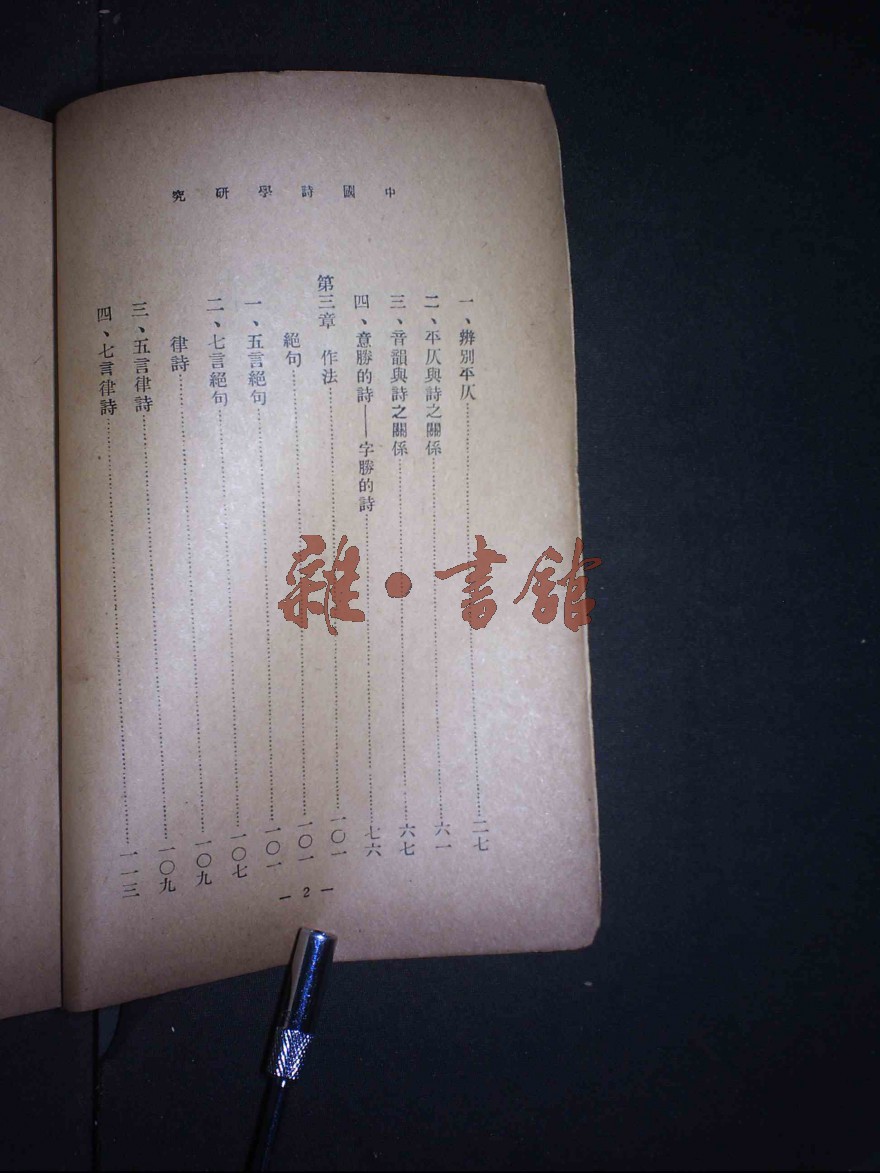 中國詩學研究
一、辨別平仄……二七
二、平仄與詩之關係……六一
三、音韻與詩之關係……六七
四、意勝的詩——字勝的詩……七六
第三章　作法……一〇一
絕句……一〇一
一、五言絕句……一〇一
二、七言絕句……一〇七
律詩……一〇九
三、五言律詩……一〇九
四、七言律詩……一一三
— 2 —
雜·書館